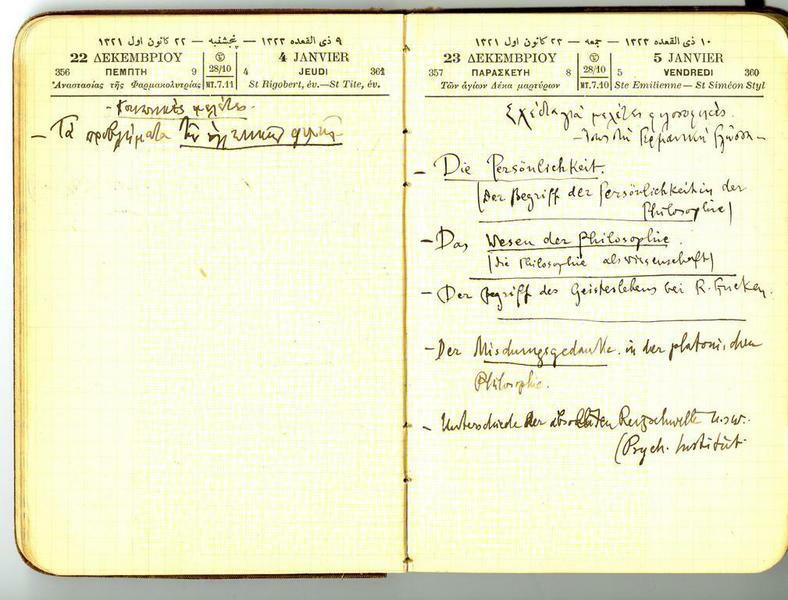 ٩ ذى القعده ١٣٢٣ — پنجشنبه — ٢٢ كانون اول ١٣٢١
22 ΔΕΚΕΜΒΡΙΟΥ 28/10 4 JANVIER
356 ΠΕΜΠΤΗ 9 ΜΤ.7.11 4 JEUDI 361
Ἀναστασίας τῆς Φαρμακολυτρίας St Rigobert, év.—St Tite, év.
— Τὰ προβλήματα
١٠ ذى القعده ١٣٢٣ — جمعه — ٢٣ كانون اول ١٣٢١
23 ΔΕΚΕΜΒΡΙΟΥ 28/10 5 JANVIER
357 ΠΑΡΑΣΚΕΥΗ 8 ΜΤ.7.10 5 VENDREDI 360
Τῶν ἁγίων Δέκα μαρτύρων Ste Emilienne — St Siméon Styl
Σχέδια γιὰ μελέτες φιλοσοφικές.
γερμανικὴ γλῶσσα —
— Die Persönlichkeit.
(Der Begriff der Persönlichkeit in der
Philosophie)
— Das Wesen der Philosophie.
(die Philosophie als Wissenschaft)
— Der Begriff des Geisteslebens bei R. Eucken.
— Der Mischungsgedanke in der platonischen
Philosophie.
— Unterschiede der absoluten Reizschwelle u.s.w.
(Psych. Institut